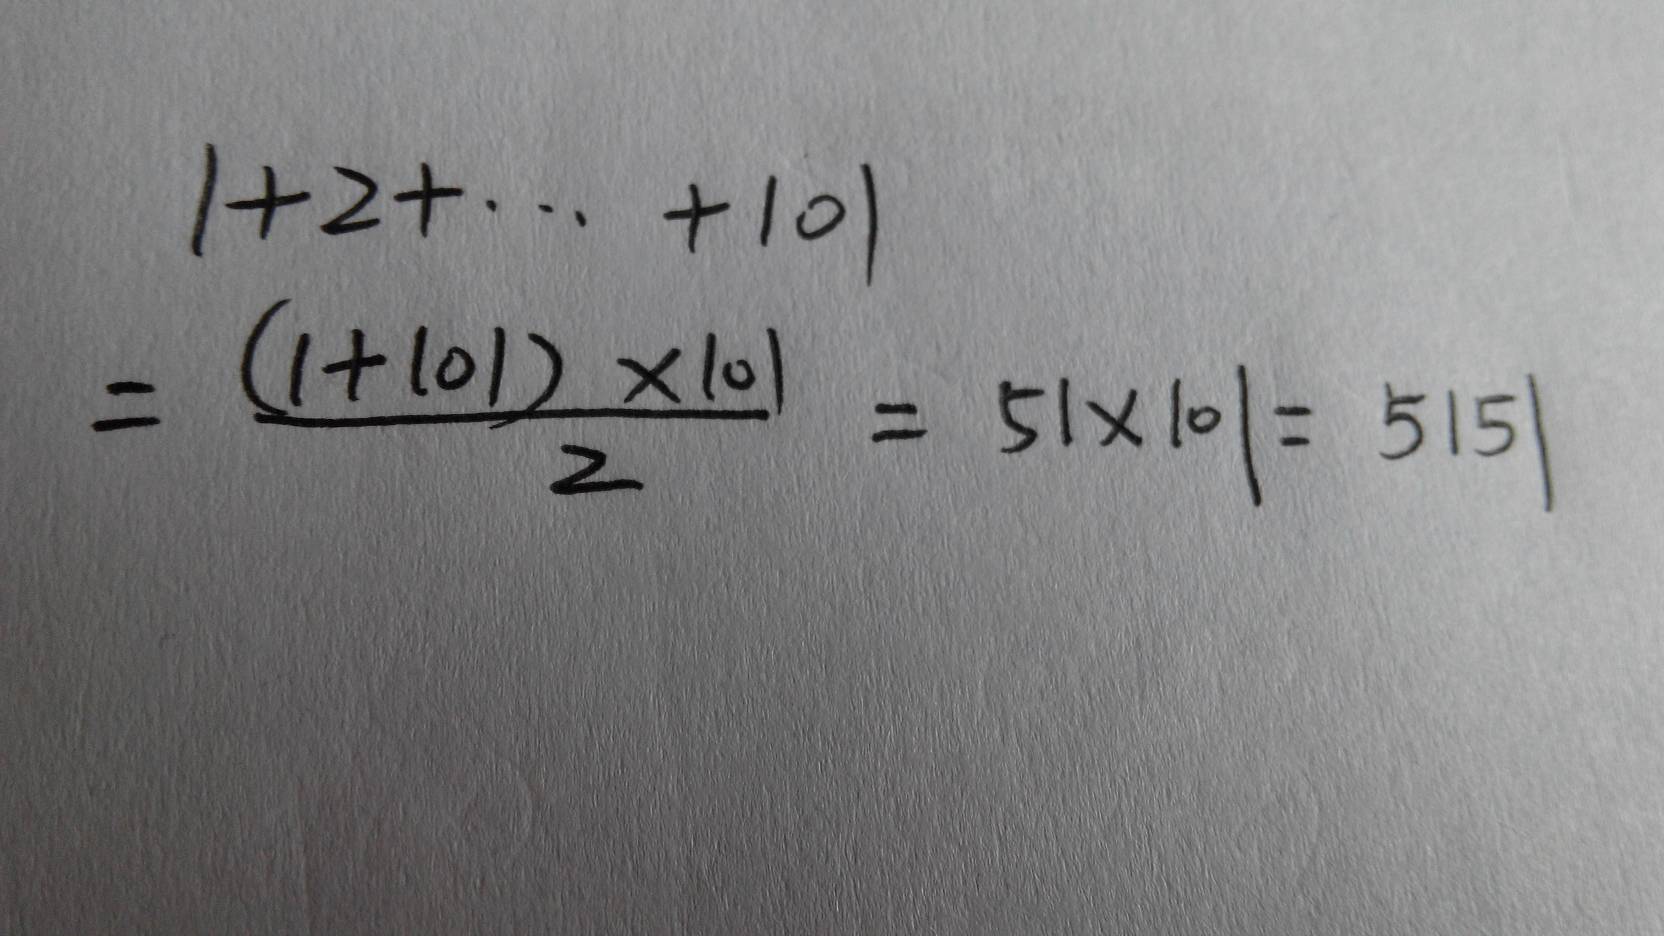 1+2+... +101
= (1+101) ×101 / 2 = 51×101= 5151